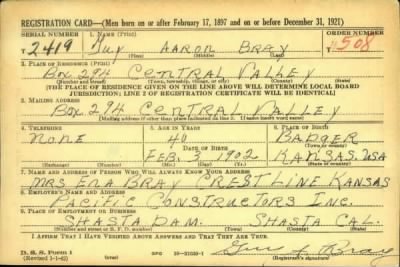 REGISTRATION CARD—(Men born on or after February 17, 1897 and on or before December 31, 1921)
SERIAL NUMBER 1. NAME (Print) ORDER NUMBER
T 2419 Guy AARON BRAY T 508
(First) (Middle) (Last)
2. PLACE OF RESIDENCE (Print)
Box 294 CENTRAL VALLEY
(Number and street) (Town, township, village, or city) (County) (State)
[THE PLACE OF RESIDENCE GIVEN ON THE LINE ABOVE WILL DETERMINE LOCAL BOARD
JURISDICTION; LINE 2 OF REGISTRATION CERTIFICATE WILL BE IDENTICAL]
3. MAILING ADDRESS
Box 294 CENTRAL VALLEY
[Mailing address if other than place indicated on line 2. If same insert word same]
4. TELEPHONE 5. AGE IN YEARS 6. PLACE OF BIRTH
NONE 40 BADGER
DATE OF BIRTH (Town or county)
FEB. 3 1902 KANSAS, USA
(Exchange) (Number) (Mo.) (Day) (Yr.) (State or country)
7. NAME AND ADDRESS OF PERSON WHO WILL ALWAYS KNOW YOUR ADDRESS
MRS ENA BRAY CRESTLINE KANSAS
8. EMPLOYER'S NAME AND ADDRESS
PACIFIC CONSTRUCTORS INC.
9. PLACE OF EMPLOYMENT OR BUSINESS
SHASTA DAM. SHASTA CAL.
(Number and street or R. F. D. number) (Town) (County) (State)
I AFFIRM THAT I HAVE VERIFIED ABOVE ANSWERS AND THAT THEY ARE TRUE.
D. S. S. Form 1
(Revised 1-1-42) (over) GPO Bray
(Registrant's signature)